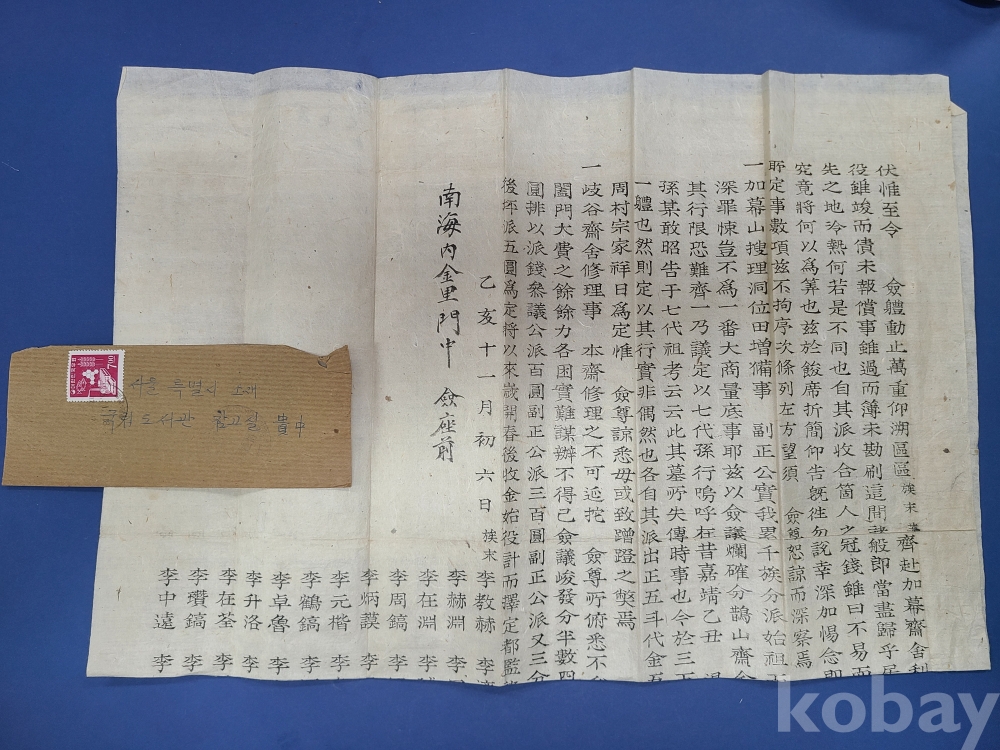 伏惟至令 僉軆動止萬重仰溯區區族末 齊赴加幕齋舍
役雖竣而債未報償事雖過而簿未勘刷這間諸般即當盡歸乎
先之地冷熱何若是不同也自其派收合箇人之冠錢雖曰不易而
究竟將何以為筭也茲於餕席折簡仰告旣徃勿說幸深加惕念即
定事數項茲不拘序次條列左方望須 僉尊恕諒而深察焉
一加幕山搜理洞位田增備事 副正公實我累千族分派始祖
深罪悚豈不爲一番大商量底事耶茲以僉議爛確分鵲山齋
其行限恐難齊一乃議定以七代孫行嗚呼在昔嘉靖乙丑
孫某敢昭告于七代祖考云云此其墓所失傳時事也今於三
一軆也然則定以其行實非偶然也各自其派出正五斗代金五
周村宗家祥日爲定惟 僉尊諒悉毋或致蹭蹬之獘焉
一岐谷齋舍修理事 本齋修理之不可迤拕 僉尊所俯悉不
闔門大費之餘餘力各困實難謀辦不得已僉議峻發分半數四
圓排以派錢叅議公派百圓副正公派三百圓副正公派又三分
後坪派五圓爲定將以來歲開春後收金始役計而擇定都監
乙亥十一月初六日 族末
李教赫 李
李赫淵 李
李在淵 李
李周鎬 李
李炳謨 李
李元楷 李
李鶴鎬 李
李卓魯 李
李升洛 李
李在荃 李
李瓚鎬 李
李中遠 李
南海內金里門中 僉座前
700
서울 특별시 소재
국회 도서관 참고실 貴中
kobay